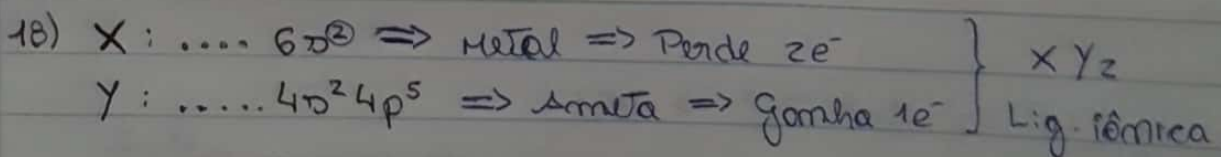 18) X : .... 6s② => Metal => Perde 2e⁻ } XY₂
Y : ..... 4s² 4p⁵ => Ametal => Ganha 1e⁻ } Lig. iônica